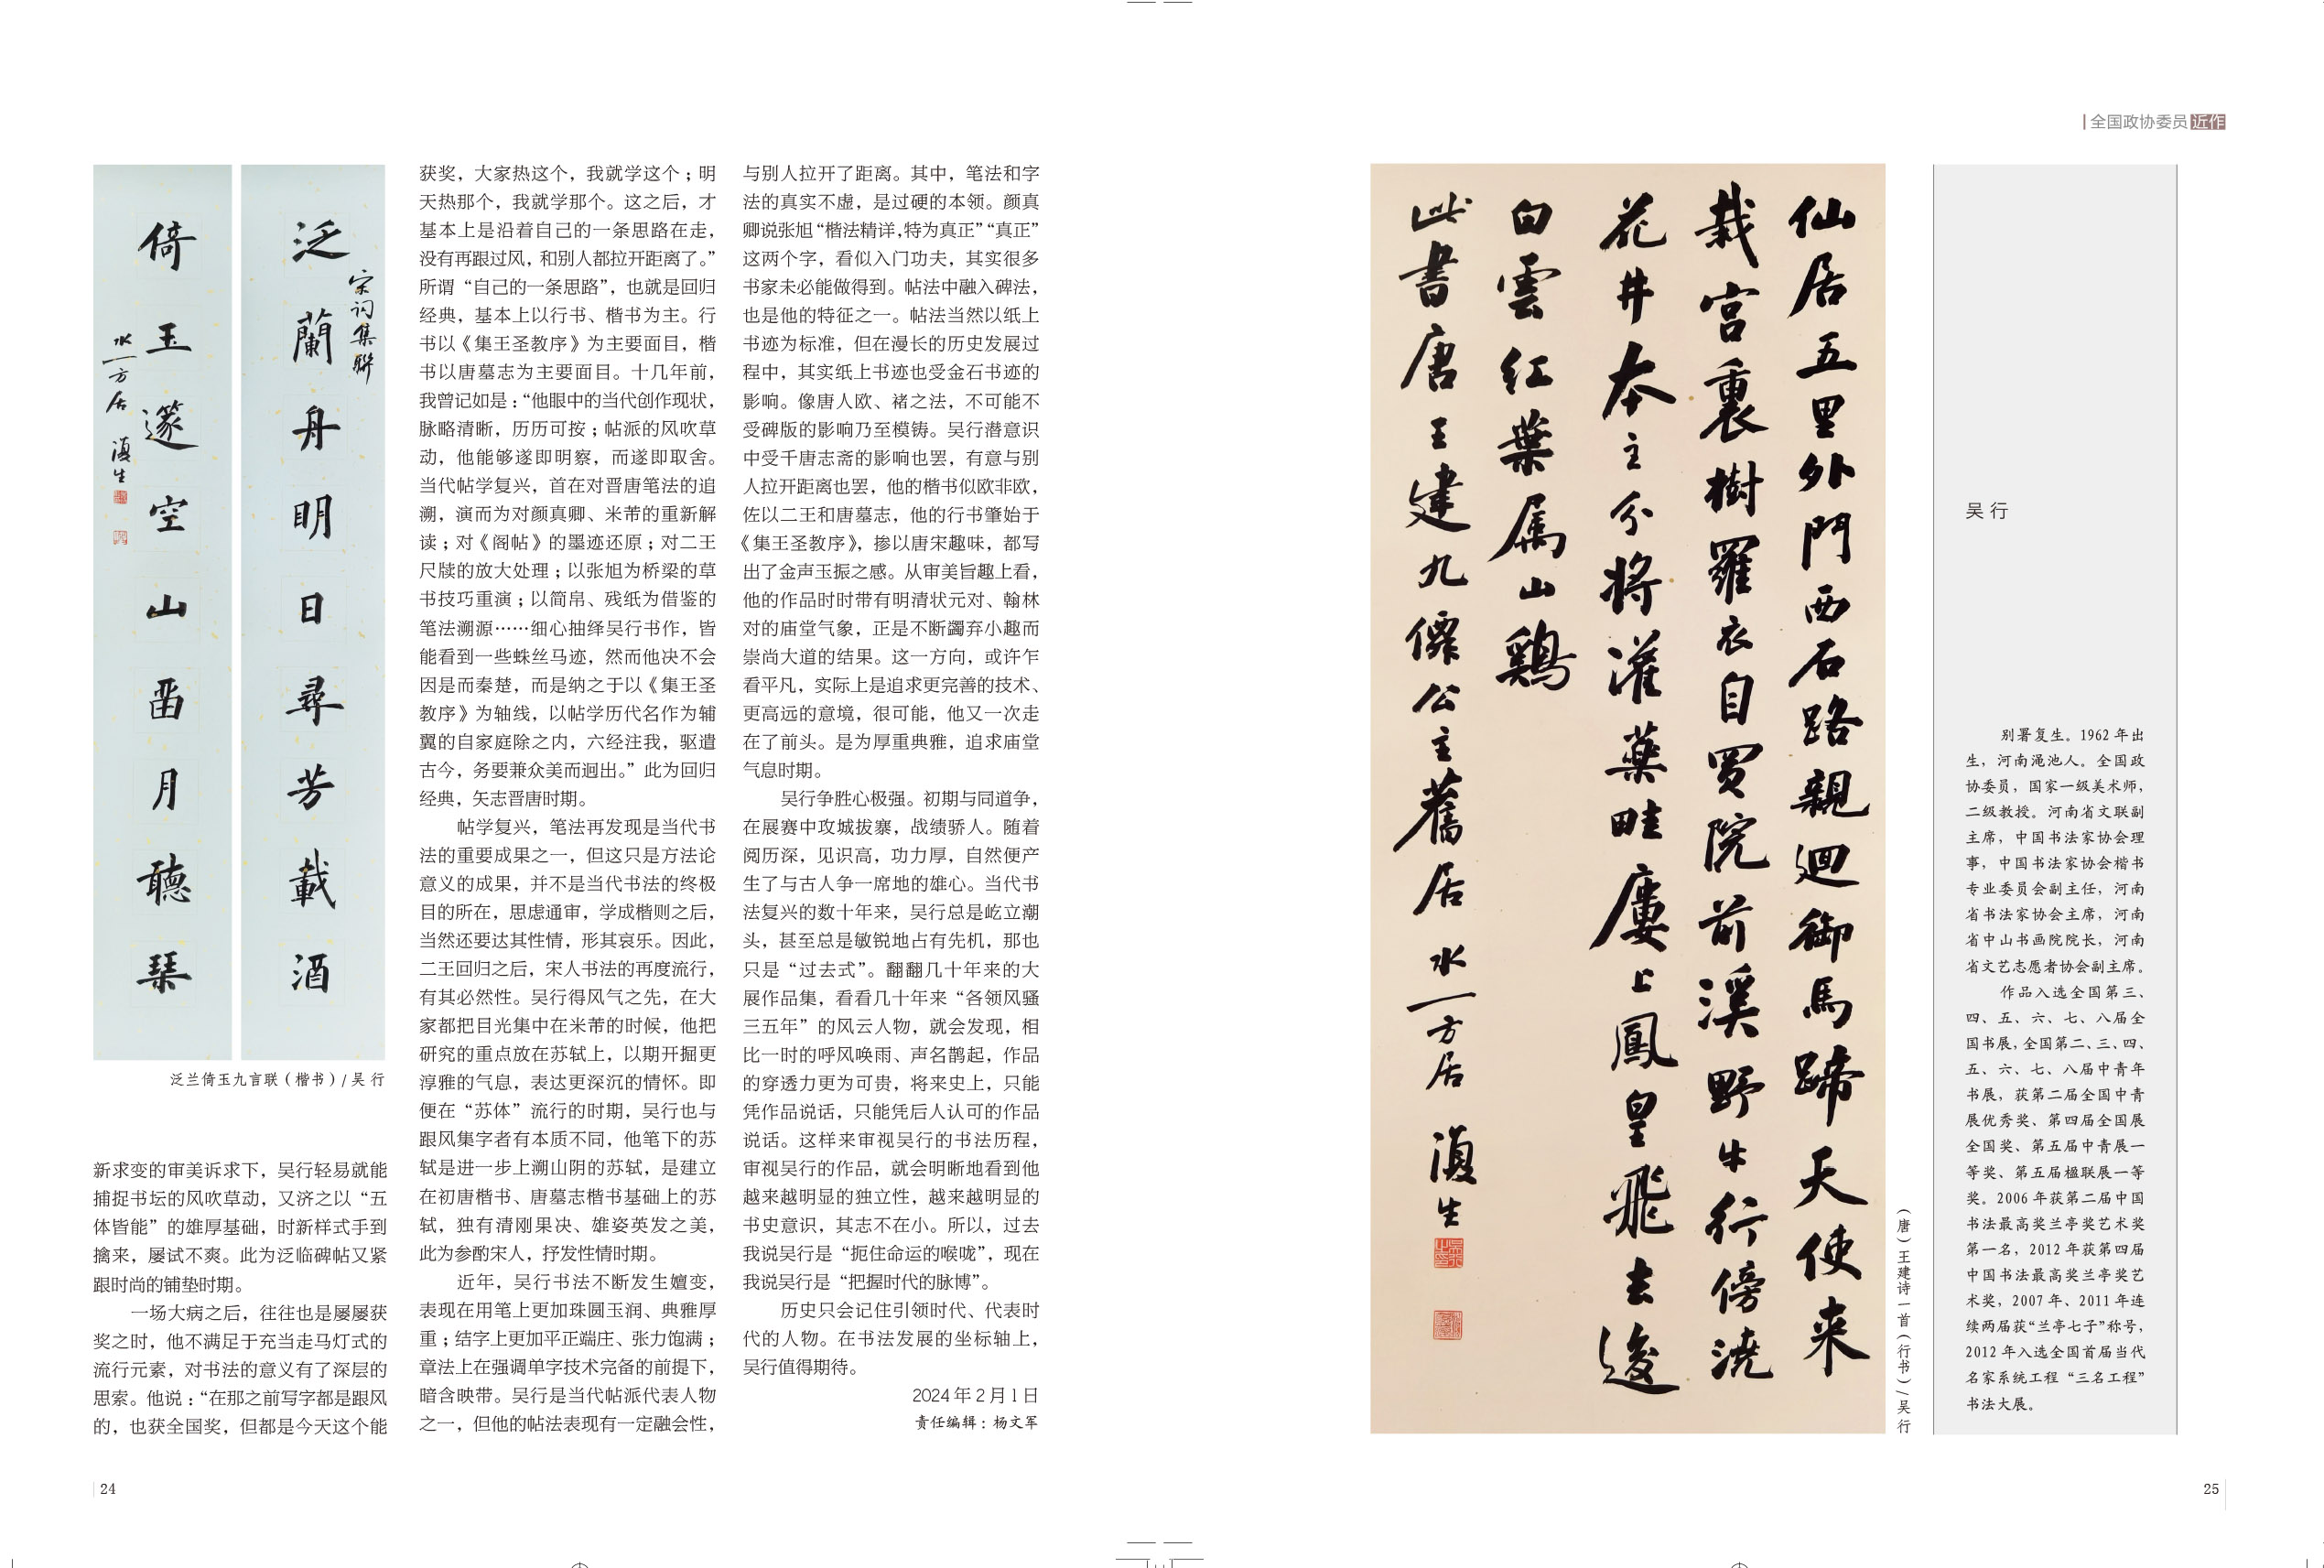 泛蘭舟明日尋芳載酒
宋词集聯
倚玉邃空山畱月聽琹
水一方居 澓生
泛兰倚玉九言联（楷书）/ 吴 行
新求变的审美诉求下，吴行轻易就能
捕捉书坛的风吹草动，又济之以“五
体皆能”的雄厚基础，时新样式手到
擒来，屡试不爽。此为泛临碑帖又紧
跟时尚的铺垫时期。
一场大病之后，往往也是屡屡获
奖之时，他不满足于充当走马灯式的
流行元素，对书法的意义有了深层的
思索。他说：“在那之前写字都是跟风
的，也获全国奖，但都是今天这个能
获奖，大家热这个，我就学这个；明
天热那个，我就学那个。这之后，才
基本上是沿着自己的一条思路在走，
没有再跟过风，和别人都拉开距离了。”
所谓“自己的一条思路”，也就是回归
经典，基本上以行书、楷书为主。行
书以《集王圣教序》为主要面目，楷
书以唐墓志为主要面目。十几年前，
我曾记如是：“他眼中的当代创作现状，
脉络清晰，历历可按；帖派的风吹草
动，他能够遂即明察，而遂即取舍。
当代帖学复兴，首在对晋唐笔法的追
溯，演而为对颜真卿、米芾的重新解
读；对《阁帖》的墨迹还原；对二王
尺牍的放大处理；以张旭为桥梁的草
书技巧重演；以简帛、残纸为借鉴的
笔法溯源……细心抽绎吴行书作，皆
能看到一些蛛丝马迹，然而他决不会
因是而秦楚，而是纳之于以《集王圣
教序》为轴线，以帖学历代名作为辅
翼的自家庭除之内，六经注我，驱遣
古今，务要兼众美而迥出。”此为回归
经典，矢志晋唐时期。
帖学复兴，笔法再发现是当代书
法的重要成果之一，但这只是方法论
意义的成果，并不是当代书法的终极
目的所在，思虑通审，学成楷则之后，
当然还要达其性情，形其哀乐。因此，
二王回归之后，宋人书法的再度流行，
有其必然性。吴行得风气之先，在大
家都把目光集中在米芾的时候，他把
研究的重点放在苏轼上，以期开掘更
淳雅的气息，表达更深沉的情怀。即
便在“苏体”流行的时期，吴行也与
跟风集字者有本质不同，他笔下的苏
轼是进一步上溯山阴的苏轼，是建立
在初唐楷书、唐墓志楷书基础上的苏
轼，独有清刚果决、雄姿英发之美，
此为参酌宋人，抒发性情时期。
近年，吴行书法不断发生嬗变，
表现在用笔上更加珠圆玉润、典雅厚
重；结字上更加平正端庄、张力饱满；
章法上在强调单字技术完备的前提下，
暗含映带。吴行是当代帖派代表人物
之一，但他的帖法表现有一定融会性，
与别人拉开了距离。其中，笔法和字
法的真实不虚，是过硬的本领。颜真
卿说张旭“楷法精详，特为真正”“真正”
这两个字，看似入门功夫，其实很多
书家未必能做得到。帖法中融入碑法，
也是他的特征之一。帖法当然以纸上
书迹为标准，但在漫长的历史发展过
程中，其实纸上书迹也受金石书迹的
影响。像唐人欧、褚之法，不可能不
受碑版的影响乃至模铸。吴行潜意识
中受千唐志斋的影响也罢，有意与别
人拉开距离也罢，他的楷书似欧非欧，
佐以二王和唐墓志，他的行书肇始于
《集王圣教序》，掺以唐宋趣味，都写
出了金声玉振之感。从审美旨趣上看，
他的作品时时带有明清状元对、翰林
对的庙堂气象，正是不断蠲弃小趣而
崇尚大道的结果。这一方向，或许乍
看平凡，实际上是追求更完善的技术、
更高远的意境，很可能，他又一次走
在了前头。是为厚重典雅，追求庙堂
气息时期。
吴行争胜心极强。初期与同道争，
在展赛中攻城拔寨，战绩骄人。随着
阅历深，见识高，功力厚，自然便产
生了与古人争一席地的雄心。当代书
法复兴的数十年来，吴行总是屹立潮
头，甚至总是敏锐地占有先机，那也
只是“过去式”。翻翻几十年来的大
展作品集，看看几十年来“各领风骚
三五年”的风云人物，就会发现，相
比一时的呼风唤雨、声名鹊起，作品
的穿透力更为可贵，将来史上，只能
凭作品说话，只能凭后人认可的作品
说话。这样来审视吴行的书法历程，
审视吴行的作品，就会明晰地看到他
越来越明显的独立性，越来越明显的
书史意识，其志不在小。所以，过去
我说吴行是“扼住命运的喉咙”，现在
我说吴行是“把握时代的脉博”。
历史只会记住引领时代、代表时
代的人物。在书法发展的坐标轴上，
吴行值得期待。
2024 年 2 月 1 日
责任编辑：杨文军
24
全国政协委员 近作
仙居五里外門西石路親迴御馬蹄天使来
栽宫裏樹羅衣自買院前溪野牛行傍澆
花井本主分将灌藥畦廔上鳳皇飛去後
白雲红葉属山鷄
此書唐王建九僊公主舊居 水一方居 澓生
（唐）王建诗一首（行书）/ 吴 行
吴 行
别署复生。1962 年出
生，河南渑池人。全国政
协委员，国家一级美术师，
二级教授。河南省文联副
主席，中国书法家协会理
事，中国书法家协会楷书
专业委员会副主任，河南
省书法家协会主席，河南
省中山书画院院长，河南
省文艺志愿者协会副主席。
作品入选全国第三、
四、五、六、七、八届全
国书展，全国第二、三、四、
五、六、七、八届中青年
书展，获第二届全国中青
展优秀奖、第四届全国展
全国奖、第五届中青展一
等奖、第五届楹联展一等
奖。2006 年获第二届中国
书法最高奖兰亭奖艺术奖
第一名，2012 年获第四届
中国书法最高奖兰亭奖艺
术奖，2007 年、2011 年连
续两届获“兰亭七子”称号，
2012 年入选全国首届当代
名家系统工程“三名工程”
书法大展。
25